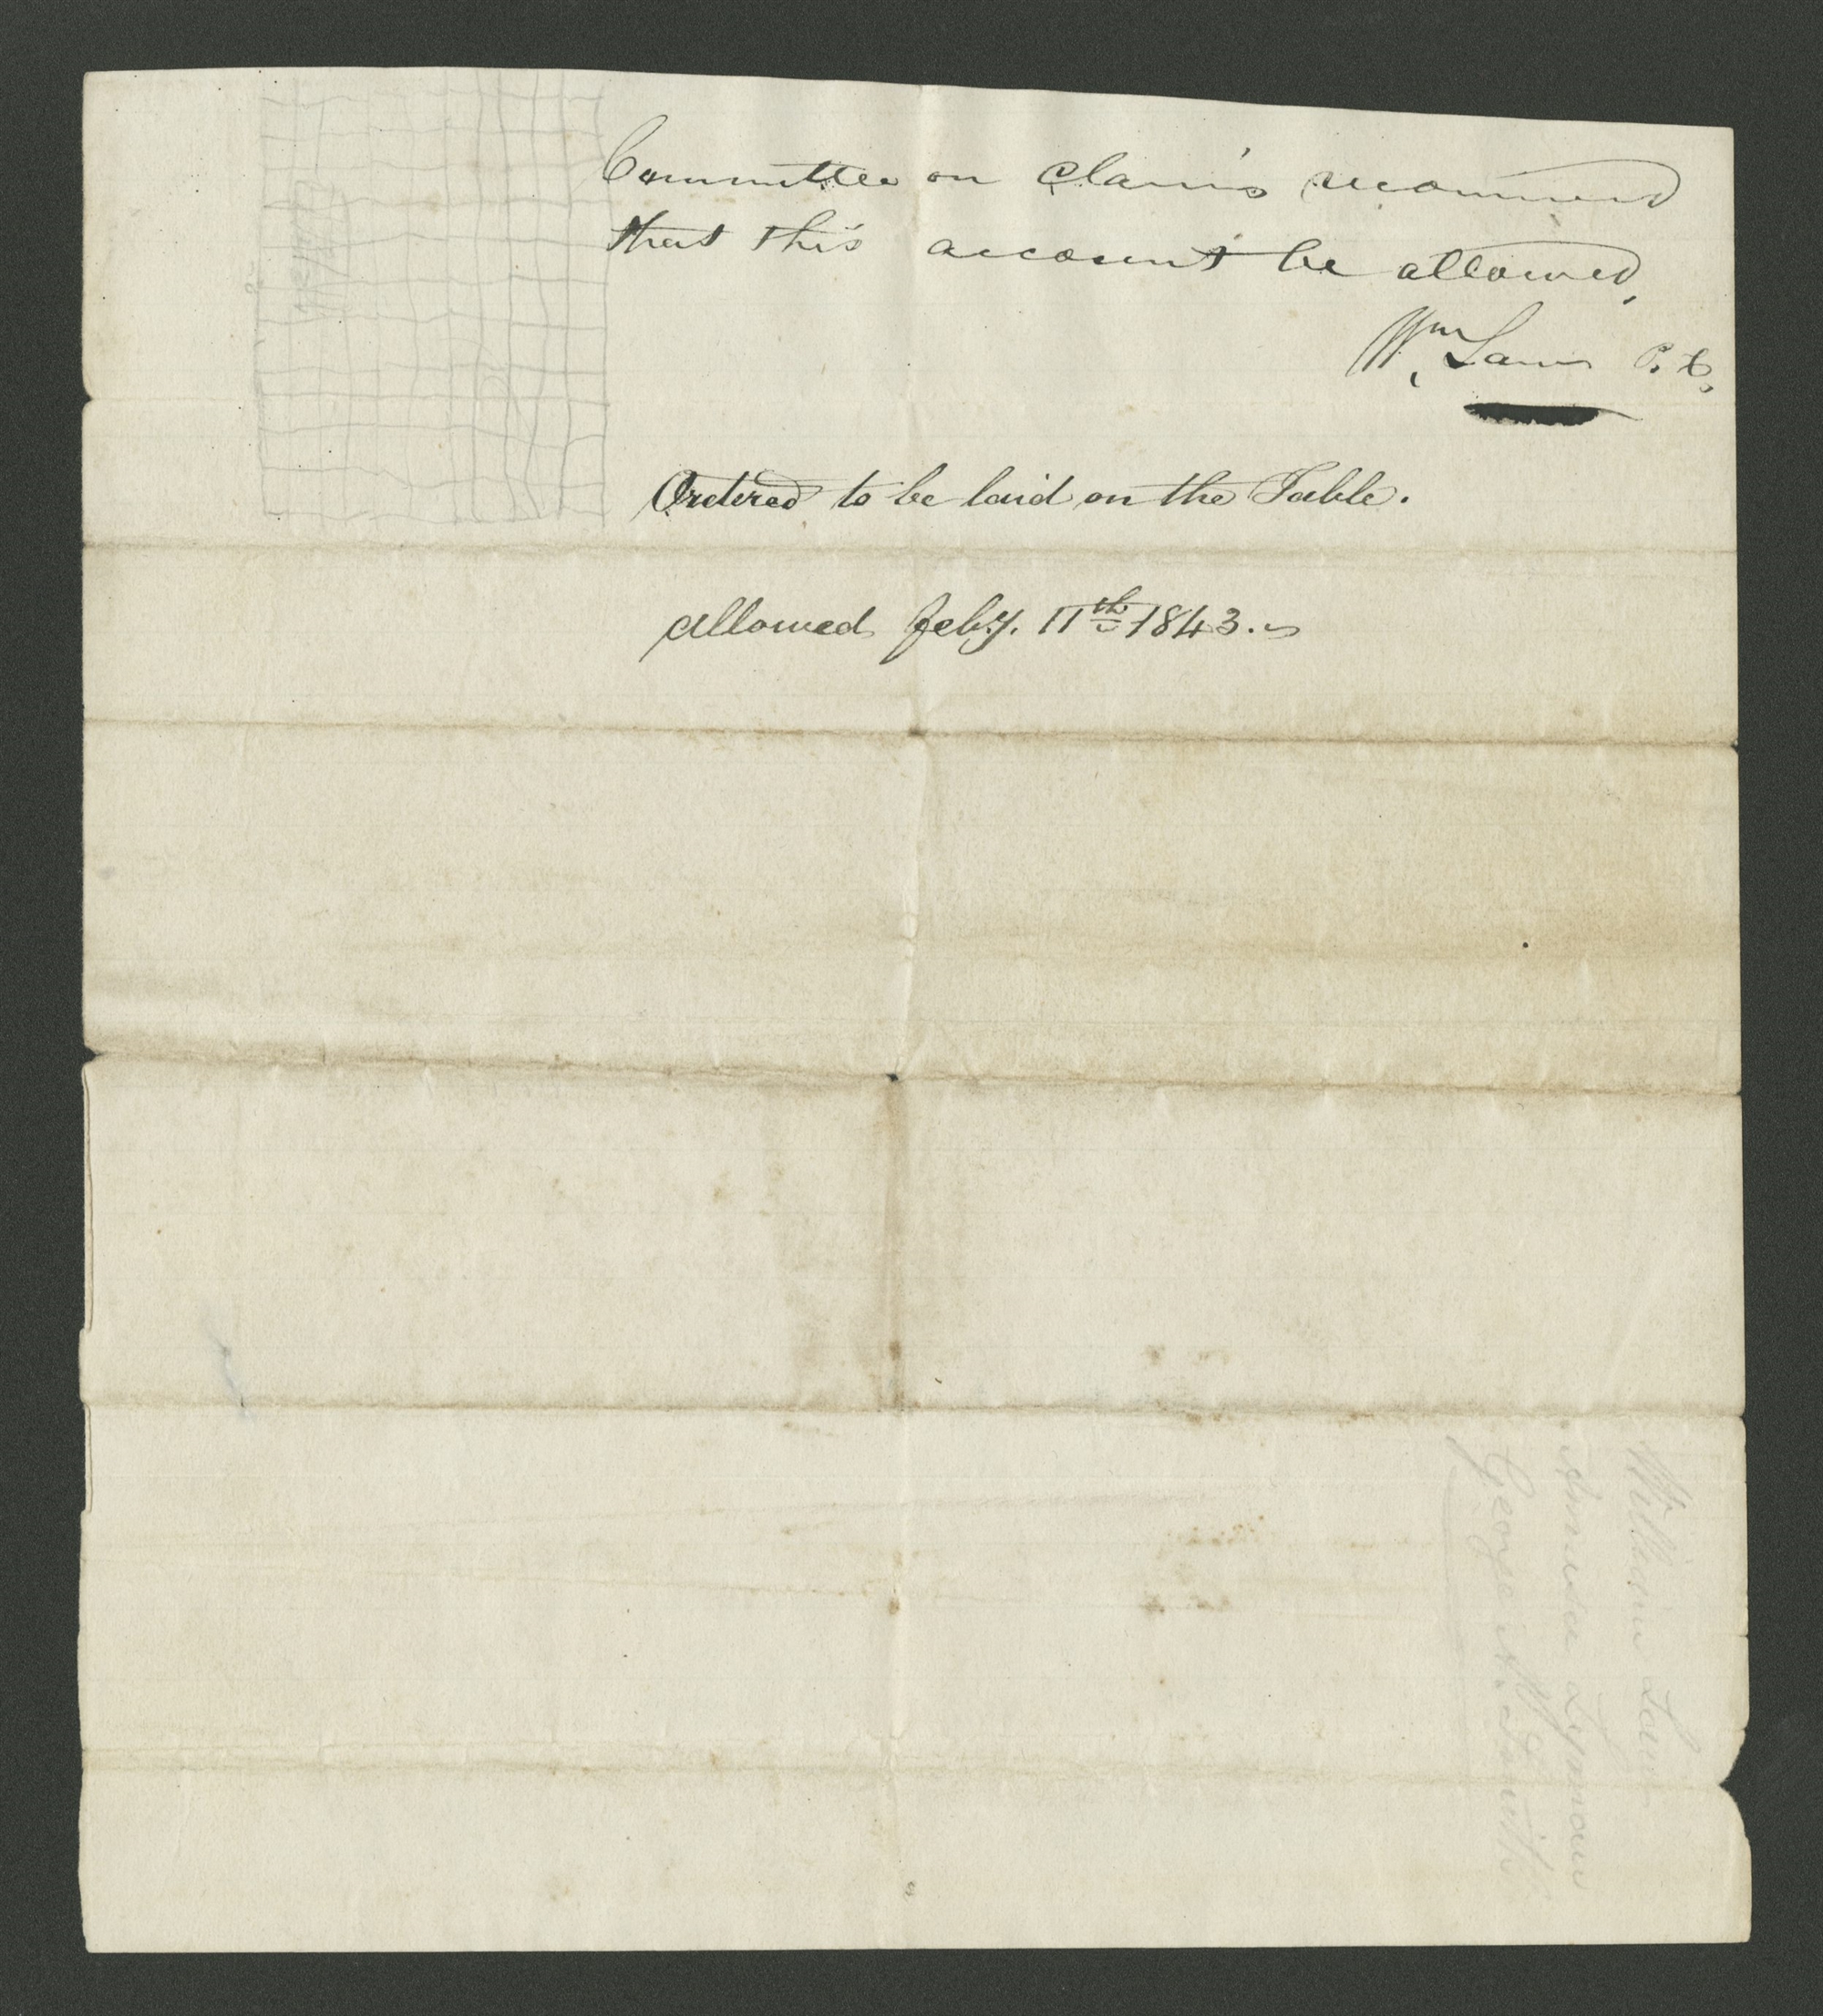 Committee on Claims recommend
that this account be allowed,
Wm Law
Ordered to be laid on the Table.
allowed Feby. 11th 1843.
William Law
Amasa Lyman
George A. Smith